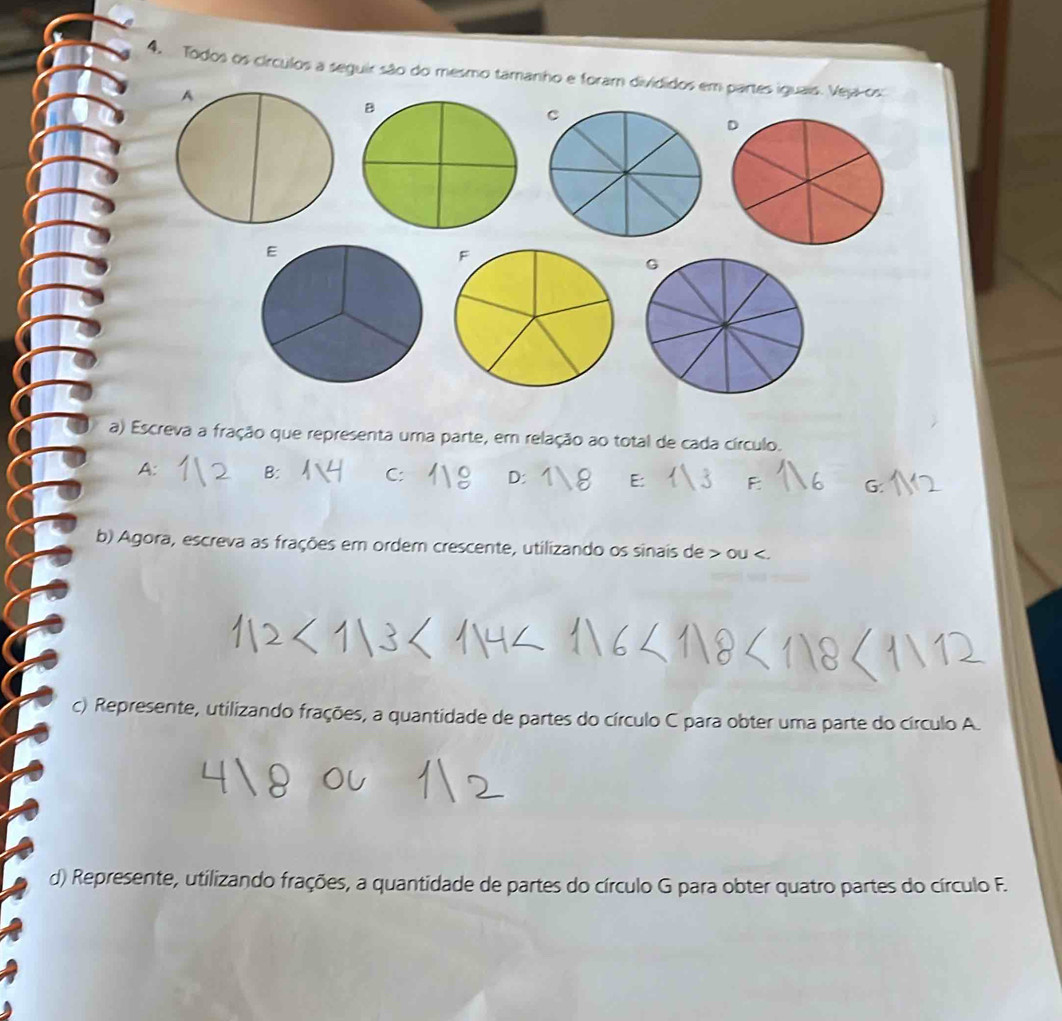 4. Todos os círculos a seguir são do mesmo tamanho e foram divididos em partes iguais. Veja-os:
A B C D
E F G
a) Escreva a fração que representa uma parte, em relação ao total de cada círculo.
A: 1\2 B: 1\4 C: 1\8 D: 1\8 E: 1\3 F: 1\6 G: 1\12
b) Agora, escreva as frações em ordem crescente, utilizando os sinais de > ou <.
1\2 < 1\3 < 1\4 < 1\6 < 1\8 < 1\8 < 1\12
c) Represente, utilizando frações, a quantidade de partes do círculo C para obter uma parte do círculo A.
4\8 ou 1\2
d) Represente, utilizando frações, a quantidade de partes do círculo G para obter quatro partes do círculo F.